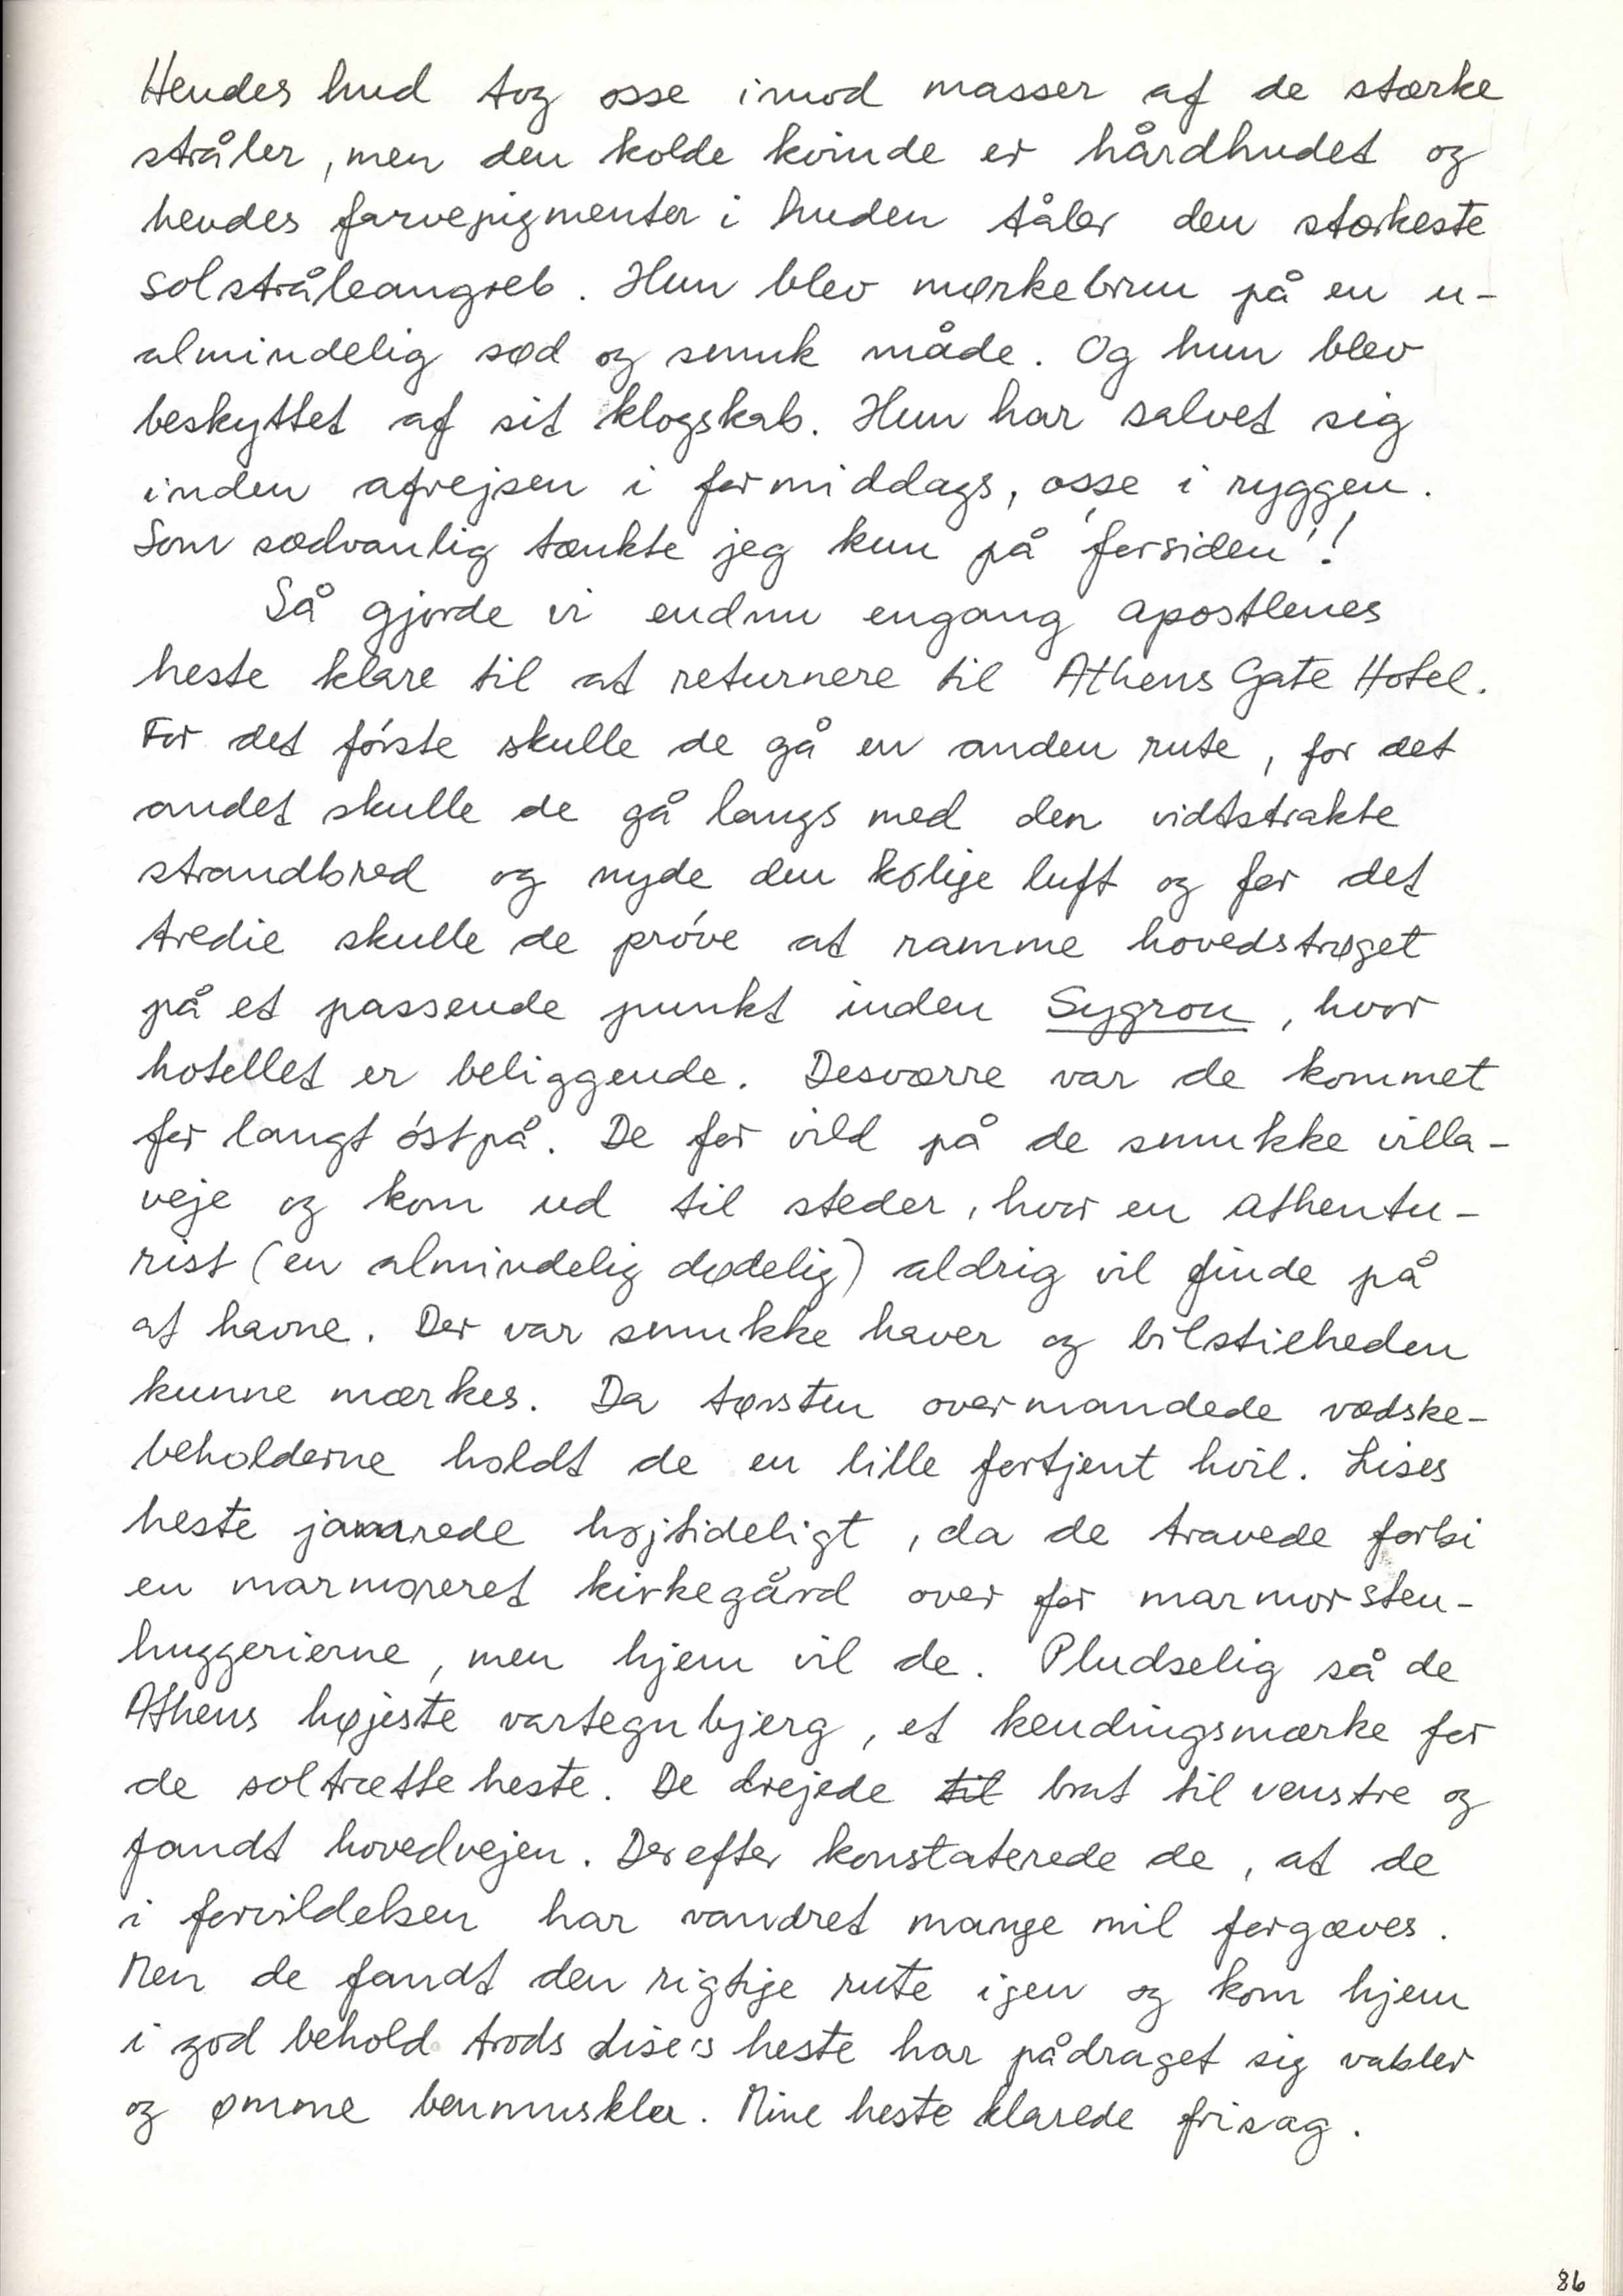 Hendes hud tog osse imod masser af de stærke
stråler, men den kolde kvinde er hårdhudet og
hendes farvepigmenter i huden tåler den stærkeste
solstråleangreb. Hun blev mørkebrun på en u-
almindelig sød og smuk måde. Og hun blev
beskyttet af sit klogskab. Hun har salvet sig
inden afrejsen i formiddags, osse i ryggen.
Som sædvanlig tænkte jeg kun på 'forsiden'!
Så gjorde vi endnu engang apostlenes
heste klare til at returnere til Athens Gate Hotel.
For det første skulle de gå en anden rute, for det
andet skulle de gå langs med den vidtstrakte
strandbred og nyde den kølige luft og for det
tredie skulle de prøve at ramme hovedstrøget
på et passende punkt inden Sygrou, hvor
hotellet er beliggende. Desværre var de kommet
for langt østpå. De for vild på de smukke villa-
veje og kom ud til steder, hvor en athentu-
rist (en almindelig dødelig) aldrig vil finde på
at havne. Der var smukke haver og bilstilheden
kunne mærkes. Da tørsten overmandede vædske-
beholderne holdt de en lille fortjent hvil. Lises
heste jamrede højtideligt, da de travede forbi
en marmoreret kirkegård over for marmorsten-
huggerierne, men hjem vil de. Pludselig så de
Athens højeste vartegnbjerg, et kendingsmærke for
de soltrætte heste. De drejede til brat til venstre og
fandt hovedvejen. Derefter konstaterede de, at de
i forvildelsen har vandret mange mil forgæves.
Men de fandt den rigtige rute igen og kom hjem
i god behold trods Lise's heste har pådraget sig vabler
og ømme benmuskler. Mine heste klarede frisag.
86